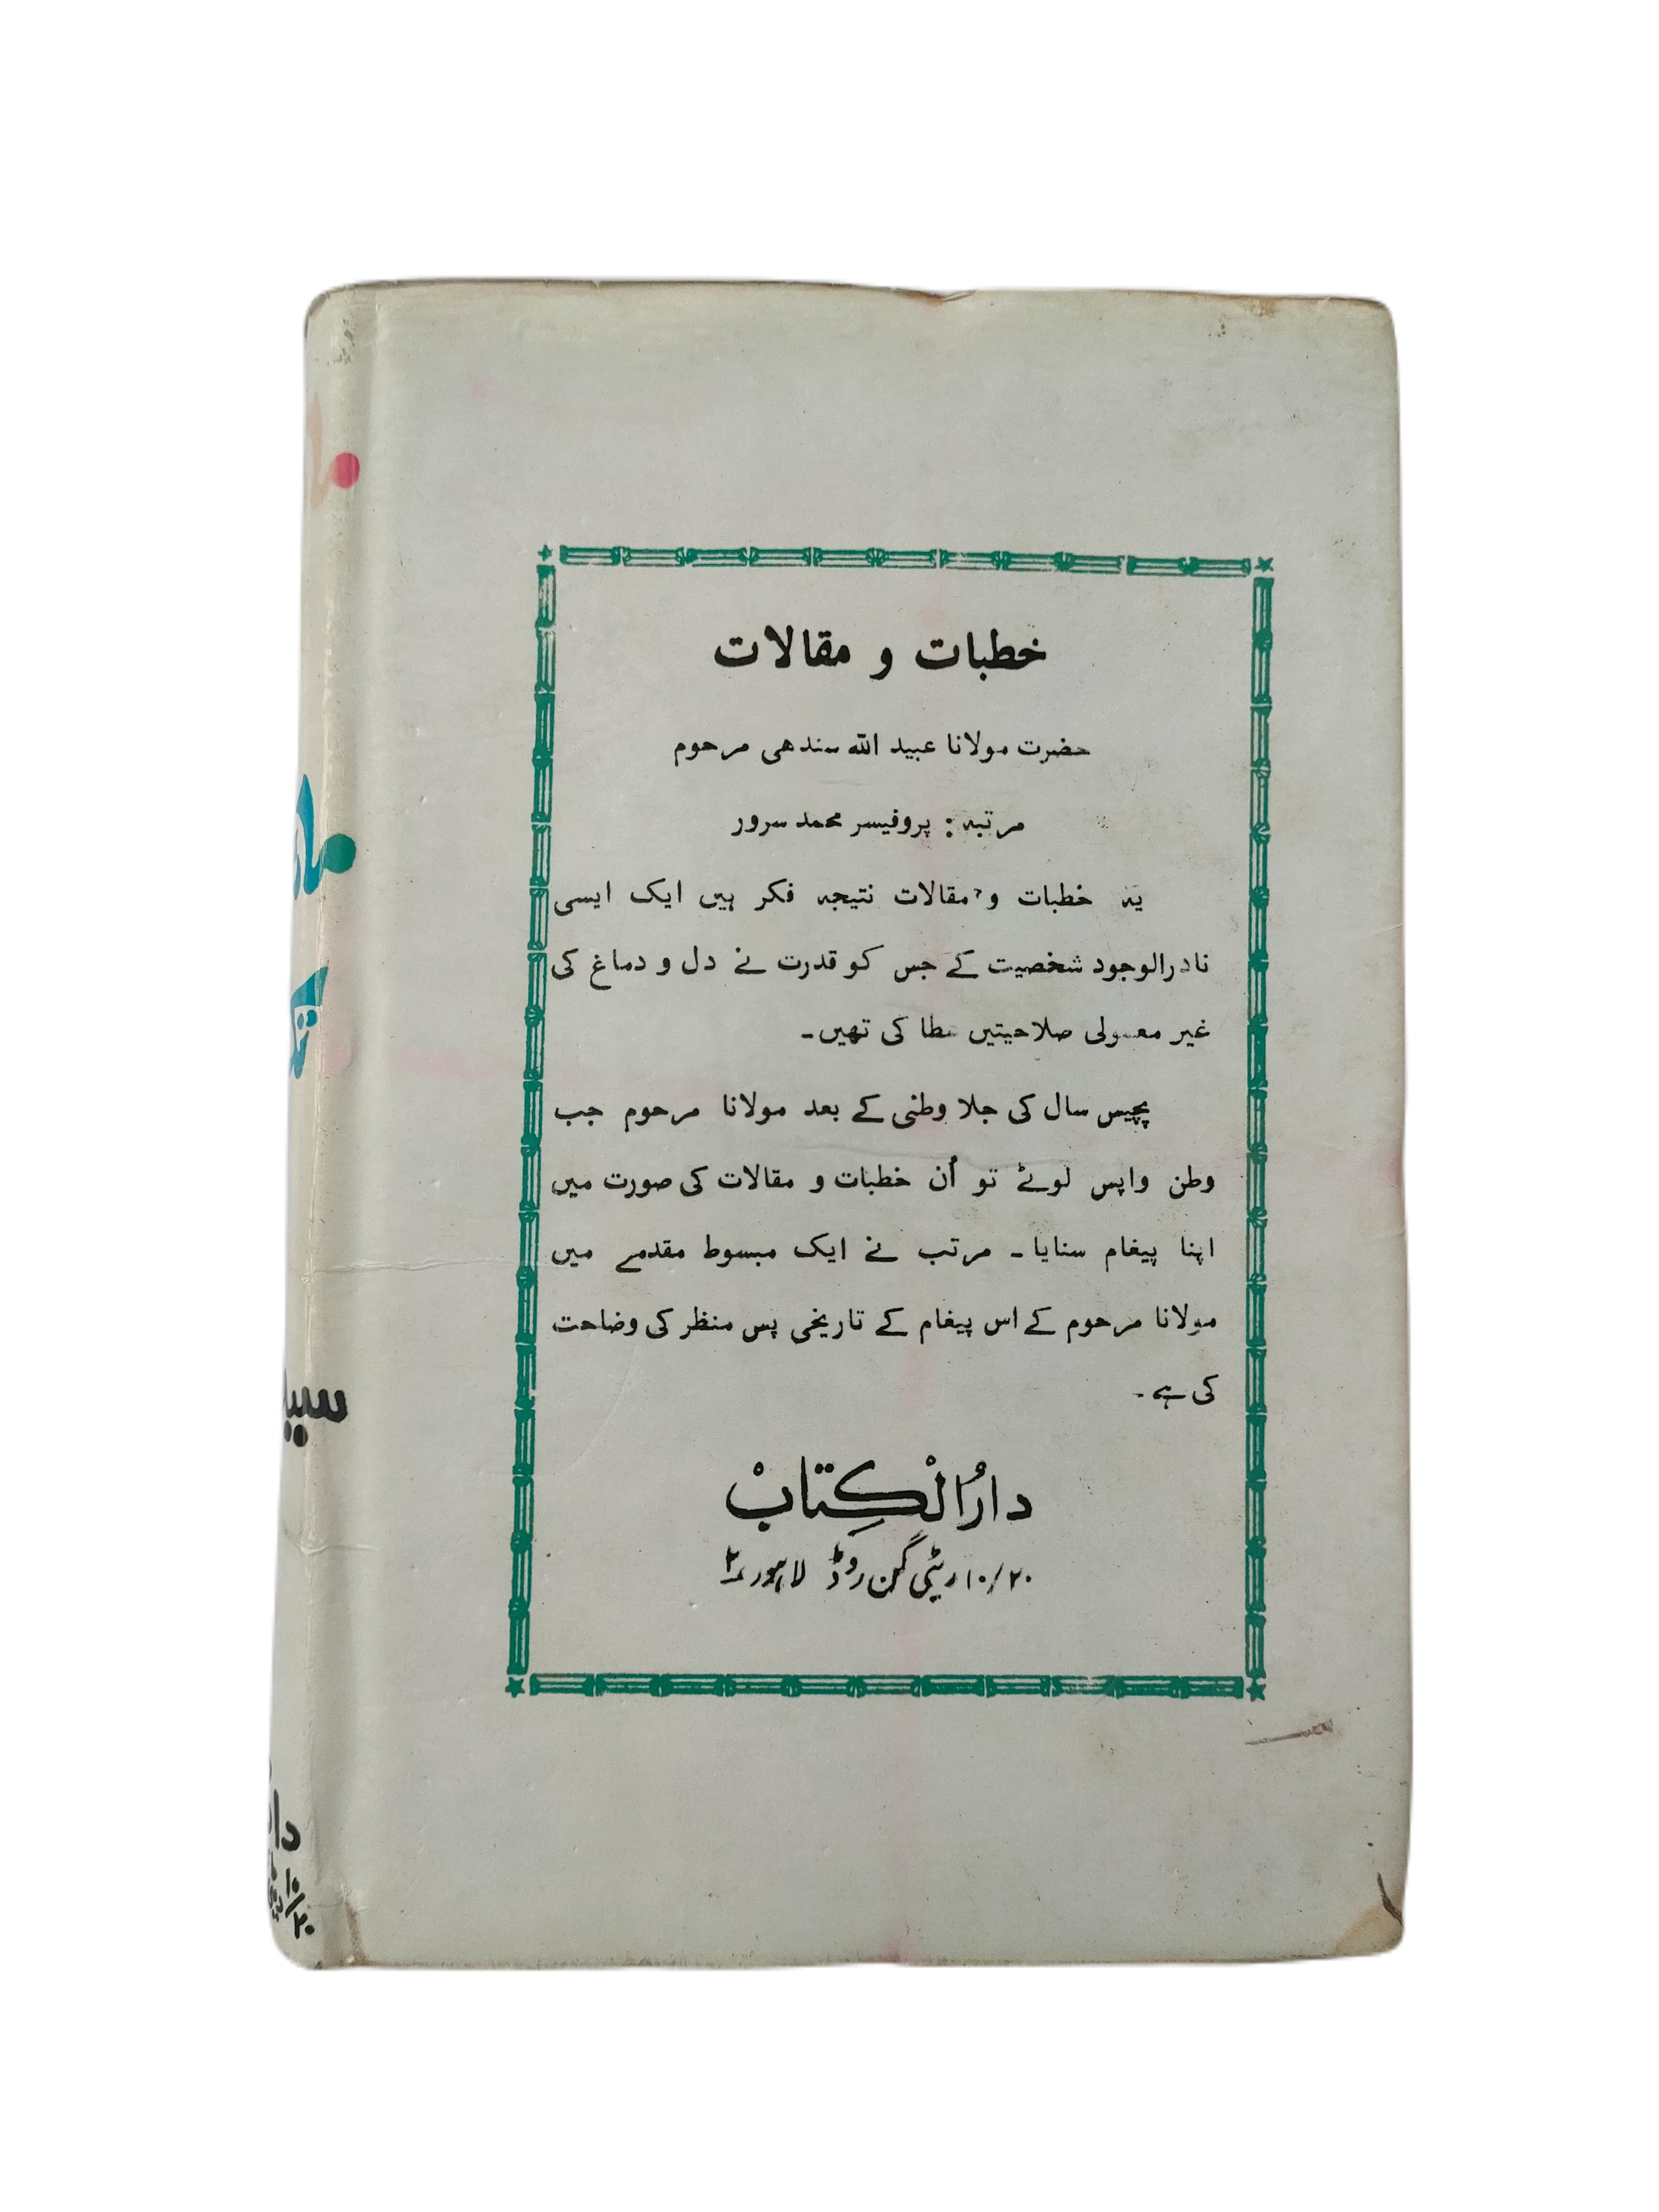 خطبات و مقالات
حضرت مولانا عبید اللہ سندھی مرحوم
مرتبہ : پروفیسر محمد سرور
یہ خطبات و مقالات نتیجہ فکر ہیں ایک ایسی
نادرالوجود شخصیت کے جس کو قدرت نے دل و دماغ کی
غیر معمولی صلاحیتیں عطا کی تھیں۔
پچیس سال کی جلا وطنی کے بعد مولانا مرحوم جب
وطن واپس لوٹے تو اُن خطبات و مقالات کی صورت میں
اپنا پیغام سنایا۔ مرتب نے ایک مبسوط مقدمے میں
مولانا مرحوم کے اس پیغام کے تاریخی پس منظر کی وضاحت
کی ہے۔
دارُالْکِتابْ
۱۰/۲۰ ریٹی گن روڈ لاہور ۲